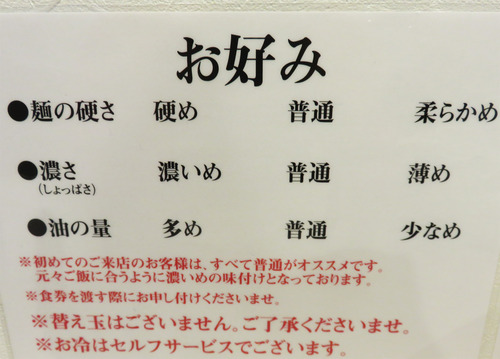 お好み
●麺の硬さ 硬め 普通 柔らかめ
●濃さ 濃いめ 普通 薄め
(しょっぱさ)
●油の量 多め 普通 少なめ
※初めてのご来店のお客様は、すべて普通がオススメです。
元々ご飯に合うように濃いめの味付けとなっております。
※食券を渡す際にお申し付けくださいませ。
※替え玉はございません。ご了承くださいませ。
※お冷はセルフサービスでございます。